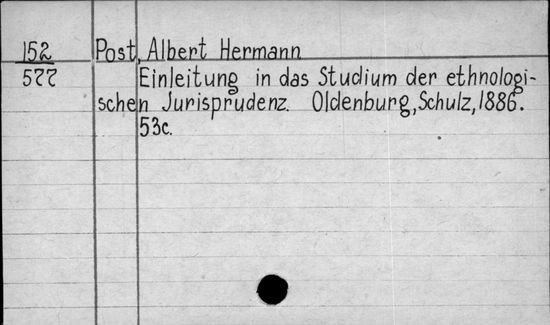 152 Post, Albert Hermann
577 Einleitung in das Studium der ethnologi-
schen Jurisprudenz. Oldenburg, Schulz, 1886.
53c.